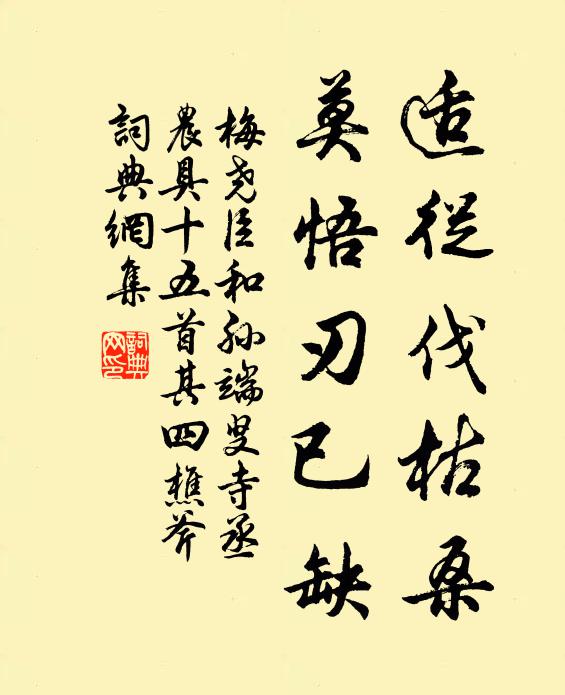 适從伐枯桑
莫悟刃已缺
梅尧臣和孙端叟寺丞
農具十五首其四樵斧
詞典網集
詞典
网印